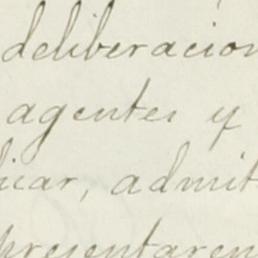 deliberacion
agentes y
licar, admit
presentaren